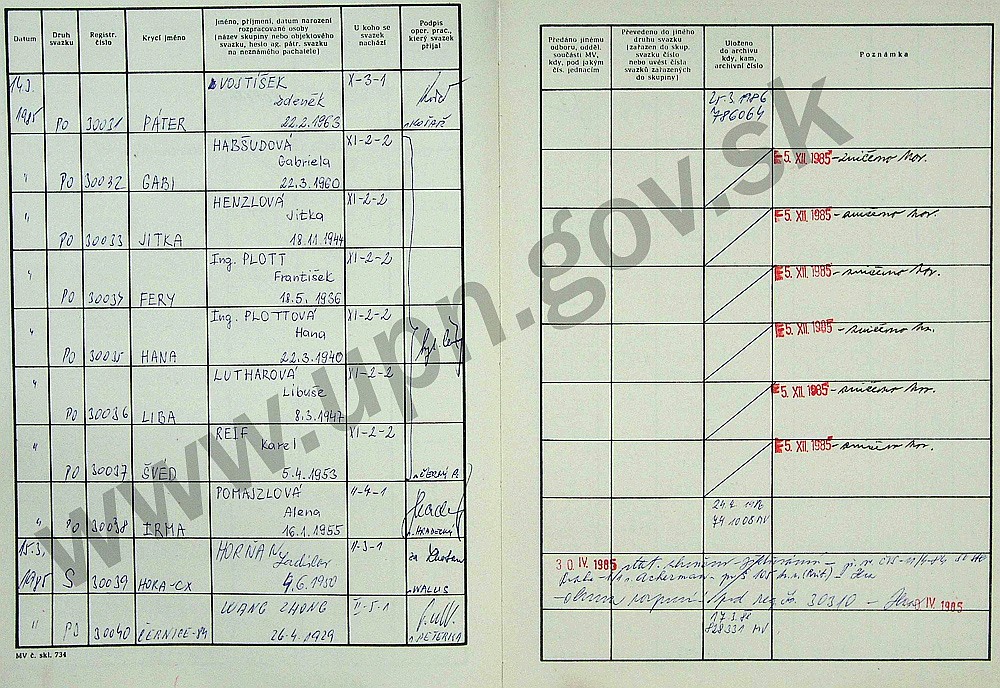 Datum
Druh svazku
Registr. číslo
Krycí jméno
Jméno, příjmení, datum narození
rozpracované osoby
(název skupiny nebo objektového
svazku, heslo ag. pátr. svazku
na neznámého pachatele)
U koho se
svazek
nachází
Podpis
oper. prac.,
který svazek
přijal
Předáno jinému
odboru, odděl.
součásti MV,
kdy, pod jakým
čís. jednacím
Převedeno do jiného
druhu svazku
(zařazen do skup.
svazku číslo
nebo uvést čísla
svazků zařazených
do skupiny)
Uloženo
do archivu
kdy, kam,
archivní číslo
Poznámka
14.3.
1985 PO 30031 PÁTER
VOSTÍŠEK
Zdeněk
22.2.1963
X-3-1
25.3.1986
786064
" PO 30032 GABI
HABŠUDOVÁ
Gabriela
22.3.1960
XI-2-2
5. XII. 1985 - zničeno
" PO 30033 JITKA
HENZLOVÁ
Jitka
18.11.1944
XI-2-2
5. XII. 1985 - zničeno
" PO 30034 FERY
Ing. PLOTT
František
18.5.1936
XI-2-2
5. XII. 1985 - zničeno
" PO 30035 HANA
Ing. PLOTTOVÁ
Hana
22.3.1940
XI-2-2
5. XII. 1985 - zničeno
" PO 30036 LIBA
LUTHAROVÁ
Libuše
8.3.1947
XI-2-2
5. XII. 1985 - zničeno
" PO 30037 ŠVÉD
REIF
Karel
5.4.1953
XI-2-2
ČERNÝ P.
5. XII. 1985 - zničeno
" PO 30038 IRMA
POMAJZLOVÁ
Alena
16.1.1955
II-4-1
HRADECKÝ
15.3.
1985 S 30039 HORA-CX
HORŇAN
Ladislav
4.6.1950
II-3-1
WALUS
30 IV. 1985
30310
IV. 1985
" PO 30040 ČERNICE-84
WANG ZHONG
26.4.1929
II-5-1
PETERKA
828331 MV
MV č. skl. 734
www.upn.gov.sk